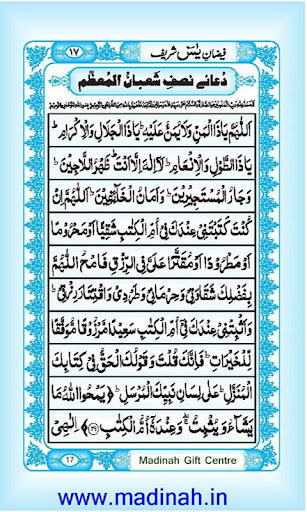 ١٧ فیضانِ یٰسٓ شریف
دُعائے نصفِ شعبانُ المُعظّم
اَللّٰهُمَّ يَا ذَا الْمَنِّ وَلَا يُمَنُّ عَلَيْهِ ؕ يَا ذَا الْجَلَالِ وَالْاِكْرَامِ ؕ
يَا ذَا الطَّوْلِ وَالْاِنْعَامِ ؕ لَآ اِلٰهَ اِلَّآ اَنْتَ ؕ ظَهْرُ اللَّاجِيْنَ ؕ
وَجَارُ الْمُسْتَجِيْرِيْنَ ؕ وَاَمَانُ الْخَآئِفِيْنَ ؕ اَللّٰهُمَّ اِنْ
كُنْتَ كَتَبْتَنِيْ عِنْدَكَ فِيْٓ اُمِّ الْكِتٰبِ شَقِيًّا اَوْ مَحْرُوْمًا
اَوْ مَطْرُوْدًا اَوْ مُقَتَّرًا عَلَيَّ فِي الرِّزْقِ فَامْحُ اللّٰهُمَّ
بِفَضْلِكَ شَقَاوَتِيْ وَحِرْمَانِيْ وَطَرْدِيْ وَاقْتِتَارَ رِزْقِيْ ؕ
وَاَثْبِتْنِيْ عِنْدَكَ فِيْٓ اُمِّ الْكِتٰبِ سَعِيْدًا مَّرْزُوْقًا مُّوَفَّقًا
لِّلْخَيْرَاتِ ؕ فَاِنَّكَ قُلْتَ وَقَوْلُكَ الْحَقُّ فِيْ كِتَابِكَ
الْمُنَزَّلِ ؕ عَلٰى لِسَانِ نَبِيِّكَ الْمُرْسَلِ ؕ ﴿يَمْحُوا اللّٰهُ مَا
يَشَآءُ وَيُثْبِتُ ۚ وَعِنْدَهٗٓ اُمُّ الْكِتٰبِ ﴿٣٩﴾ اِلٰهِيْ
17 Madinah Gift Centre
www.madinah.in